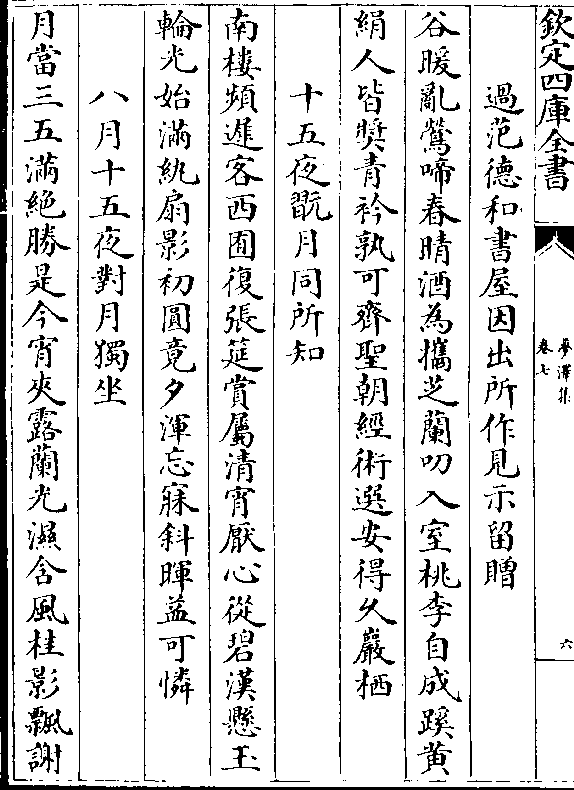 欽定四庫全書
夢澤集
卷七
六
過范德和書屋因出所作見示留贈
谷暖亂鶯啼春晴酒為攜芝蘭叨入室桃李自成蹊黄
絹人皆奬青衿孰可齊聖朝經術選安得久巖栖
十五夜翫月同所知
南樓頻遲客西囿復張筵賞屬清宵厭心從碧漢懸玉
輪光始滿紈扇影初圓竟夕渾忘寐斜暉益可憐
八月十五夜對月獨坐
月當三五滿絶勝是今宵夾露蘭光濕含風桂影飄謝